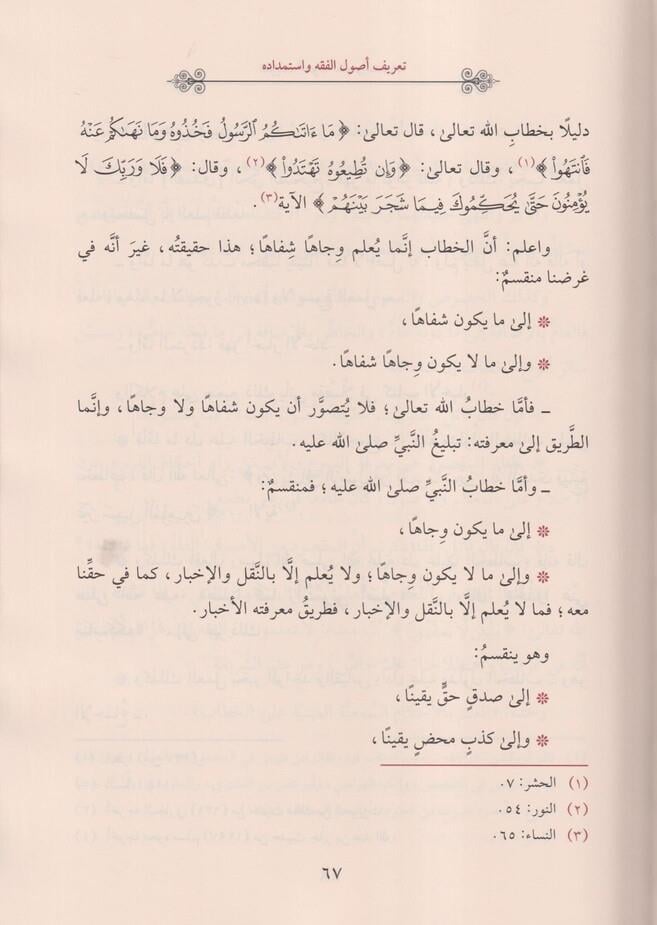 تعريف أصول الفقه واستمداده
دليلًا بخطابِ الله تعالىٰ، قال تعالىٰ: ﴿مَا ءَاتَىٰكُمُ ٱلرَّسُولُ فَخُذُوهُ وَمَا نَهَىٰكُمْ عَنْهُ
فَٱنتَهُواْ﴾(١)، وقال تعالىٰ: ﴿وَإِن تُطِيعُوهُ تَهْتَدُواْ﴾(٢)، وقال: ﴿فَلَا وَرَبِّكَ لَا
يُؤْمِنُونَ حَتَّىٰ يُحَكِّمُوكَ فِيمَا شَجَرَ بَيْنَهُمْ﴾ الآية(٣).
واعلم: أنَّ الخطاب إنَّما يُعلم وِجاهًا شِفاهًا؛ هذا حقيقتُه، غيرَ أنَّه في
غرضنا منقسمٌ:
❊ إلىٰ ما يكون شفاهًا،
❊ وإلىٰ ما لا يكون وِجاهًا شفاهًا.
ـ فأمَّا خطابُ الله تعالىٰ؛ فلا يُتصوَّر أن يكون شفاهًا ولا وجاهًا، وإنَّما
الطَّريق إلىٰ معرفته: تبليغُ النَّبيِّ صلىٰ الله عليه.
ـ وأمَّا خطابُ النَّبيِّ صلىٰ الله عليه؛ فمنقسمٌ:
❊ إلىٰ ما يكون وِجاهًا،
❊ وإلىٰ ما لا يكون وِجاهًا؛ ولا يُعلم إلَّا بالنَّقل والإخبار، كما في حقِّنا
معه؛ فما لا يُعلم إلَّا بالنَّقل والإخبار، فطريقُ معرفته الأخبار.
وهو ينقسمُ:
❊ إلىٰ صدقٍ حقٍّ يقينًا،
❊ وإلىٰ كذبٍ محضٍ يقينًا،
(١) الحشر: ٠٧
(٢) النور: ٠٥٤
(٣) النساء: ٠٦٥
٦٧